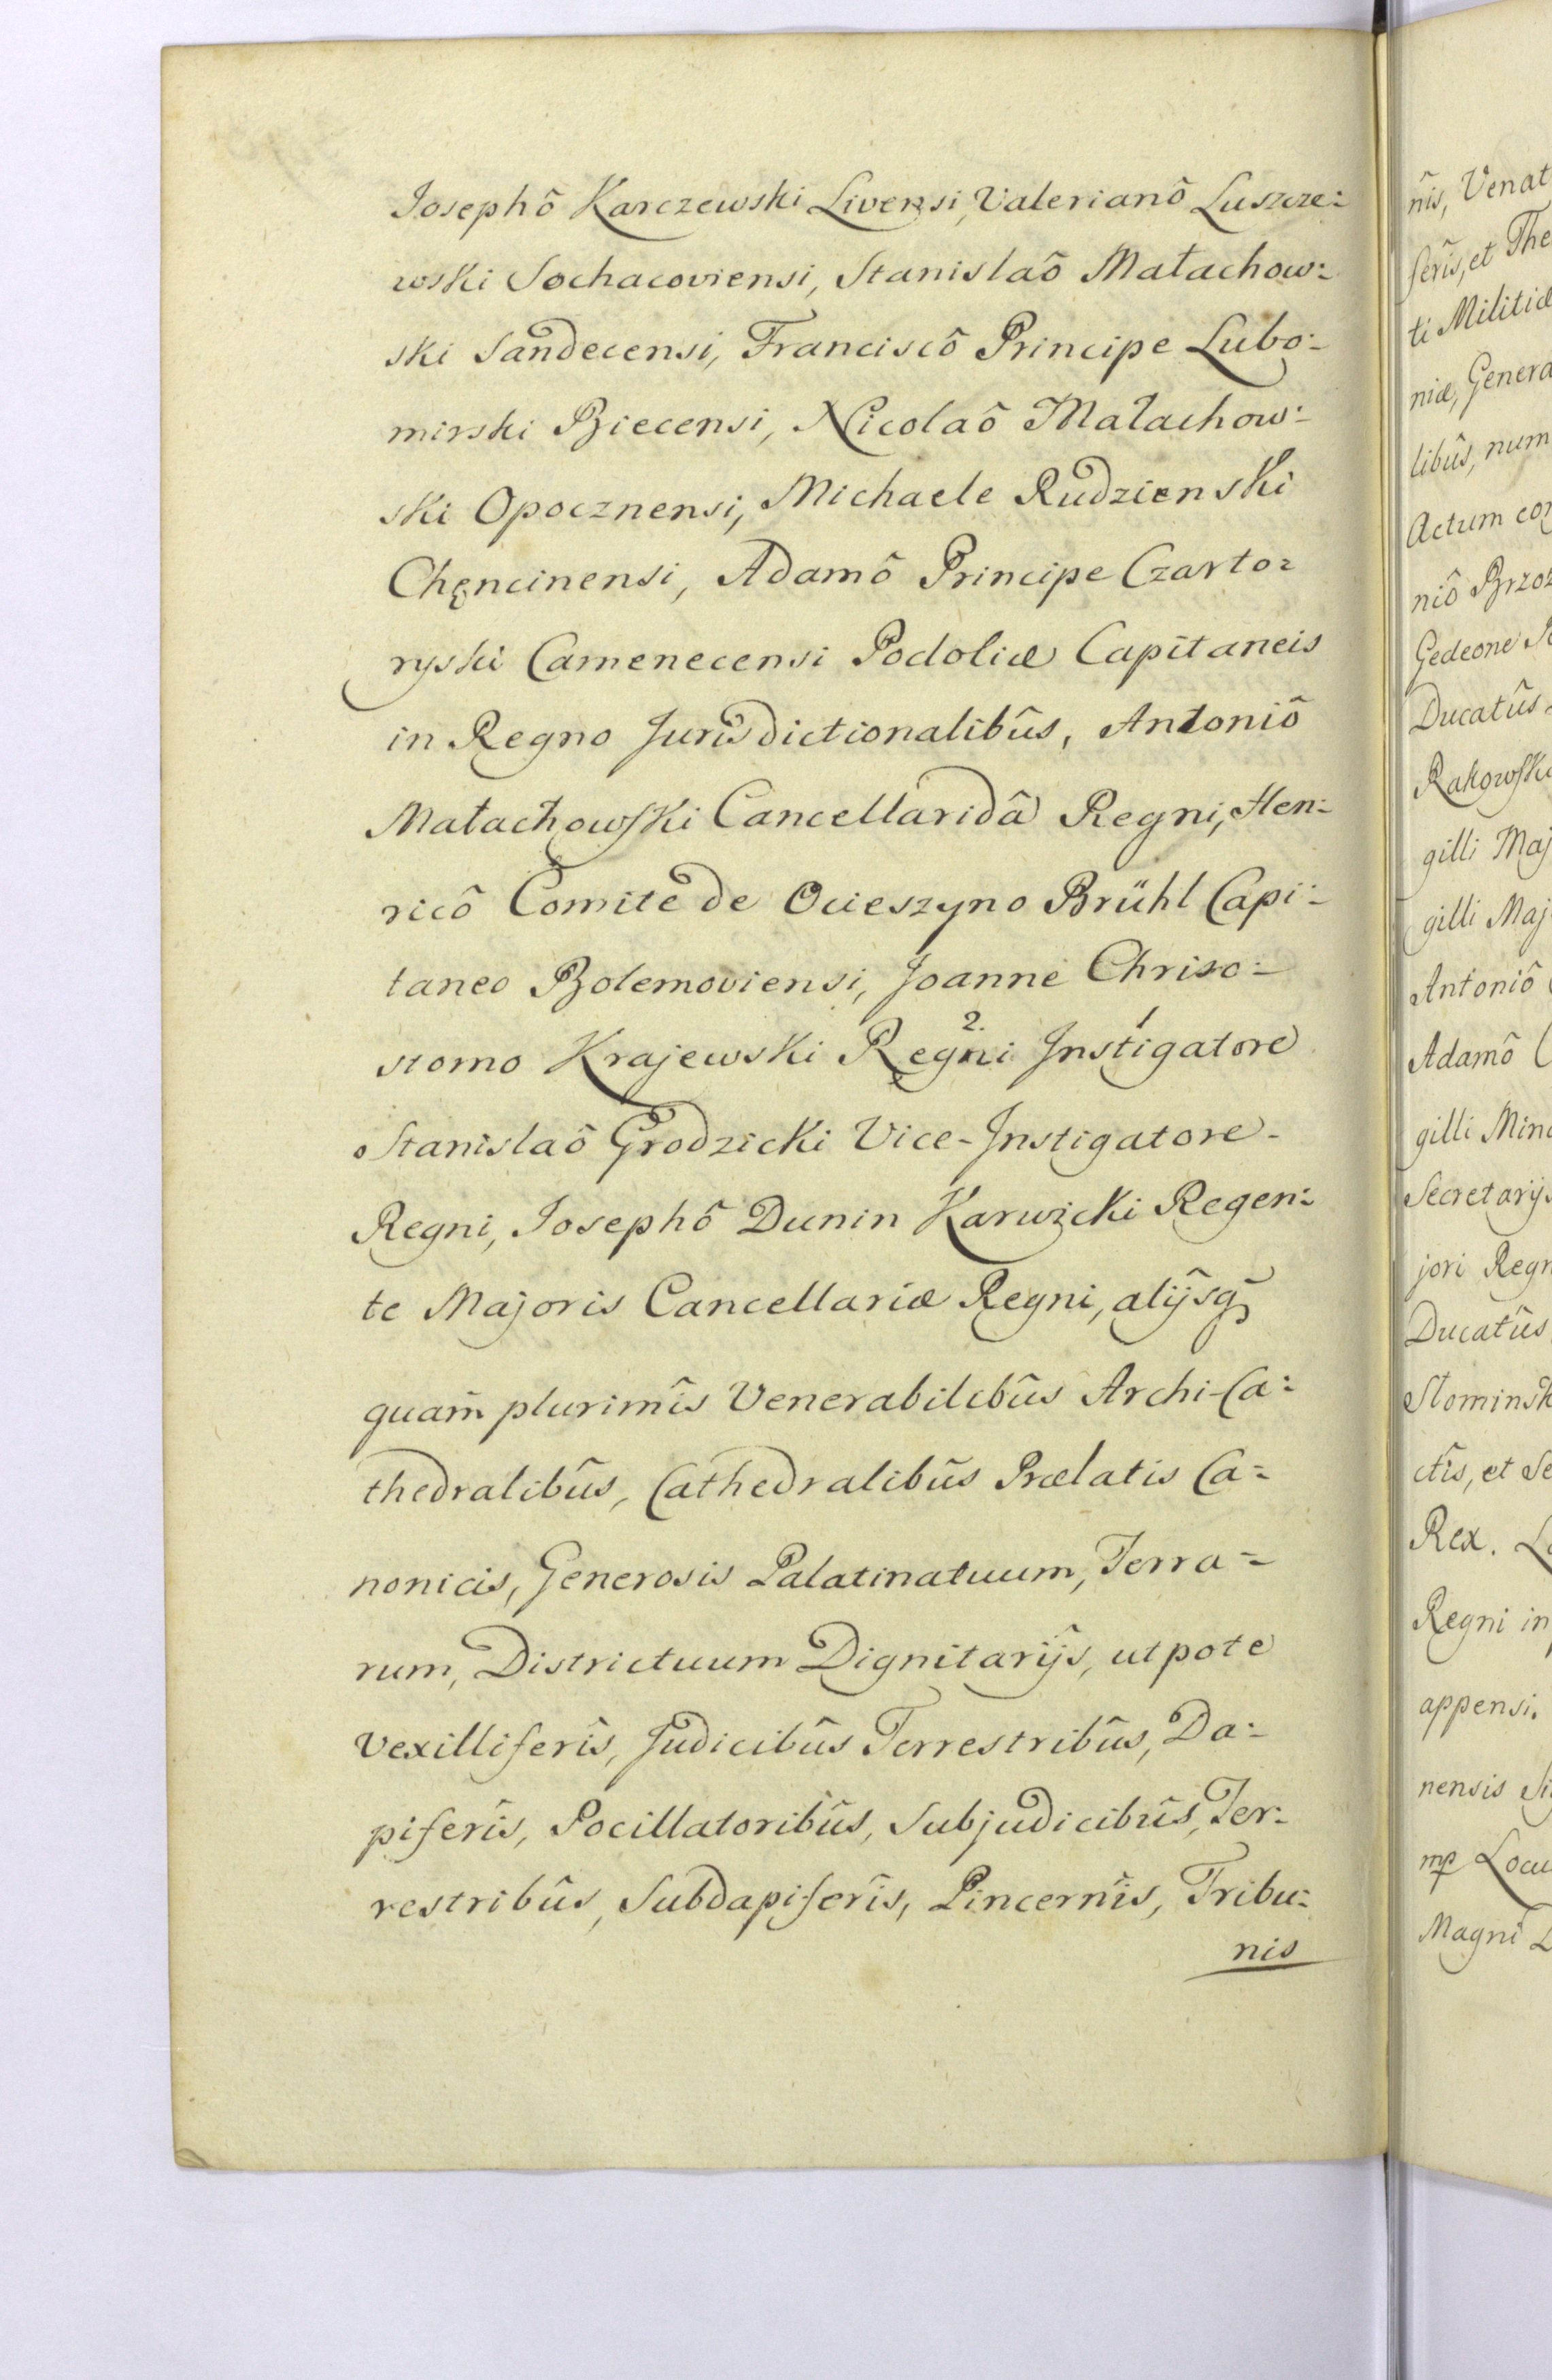 Josephô Karczewski Livensi, Valerianô Luszcze=
wski Sochacoviensi, Stanislaô Małachow=
ski Sandecensi, Franciscô Principe Lubo=
mirski Biecensi, Nicolaô Małachow=
ski Opocznensi, Michaele Rudzienski
Chęncinensi, Adamô Principe Czarto=
ryski Camenecensi Podoliæ Capitaneis
in Regno Jurisdictionalibûs, Antoniô
Małachowski Cancellaridâ Regni, Hen=
ricô Comite de Ocieszyno Brühl Capi=
taneo Bolemoviensi, Joanne Chriso=
2. 1
stomo Krajewski Regni Instigatore
Stanislaô Grodzicki Vice-Instigatore
Regni, Josephô Dunin Karwicki Regen=
te Majoris Cancellariæ Regni, alijsq3
quam plurimîs Venerabilibûs Archi-Ca=
thedralibûs, Cathedralibûs Prælatis Ca=
nonicis, Generosis Palatinatuum, Terra=
rum, Districtuum Dignitarijs, utpote
Vexilliferîs, Judicibûs Terrestribûs, Da=
piferîs, Pocillatoribûs, Subjudicibûs, Ter=
restribûs, Subdapiferîs, Pincernîs, Tribu=
nis
nîs, Venat
ferîs, et The
ti Militiæ
niæ, Genera
libûs, num
Actum co
niô Brzoz
Gedeone
Ducatûs
Rakowski
gilli Maj
gilli Maj
Antoniô
Adamô
gilli Mino
Secretarijs
jori Regn
Ducatûs
Słominsk
ctîs, et Se
Rex. Lo
Regni in
appensi.
nensis Si
mp Locu
Magni D